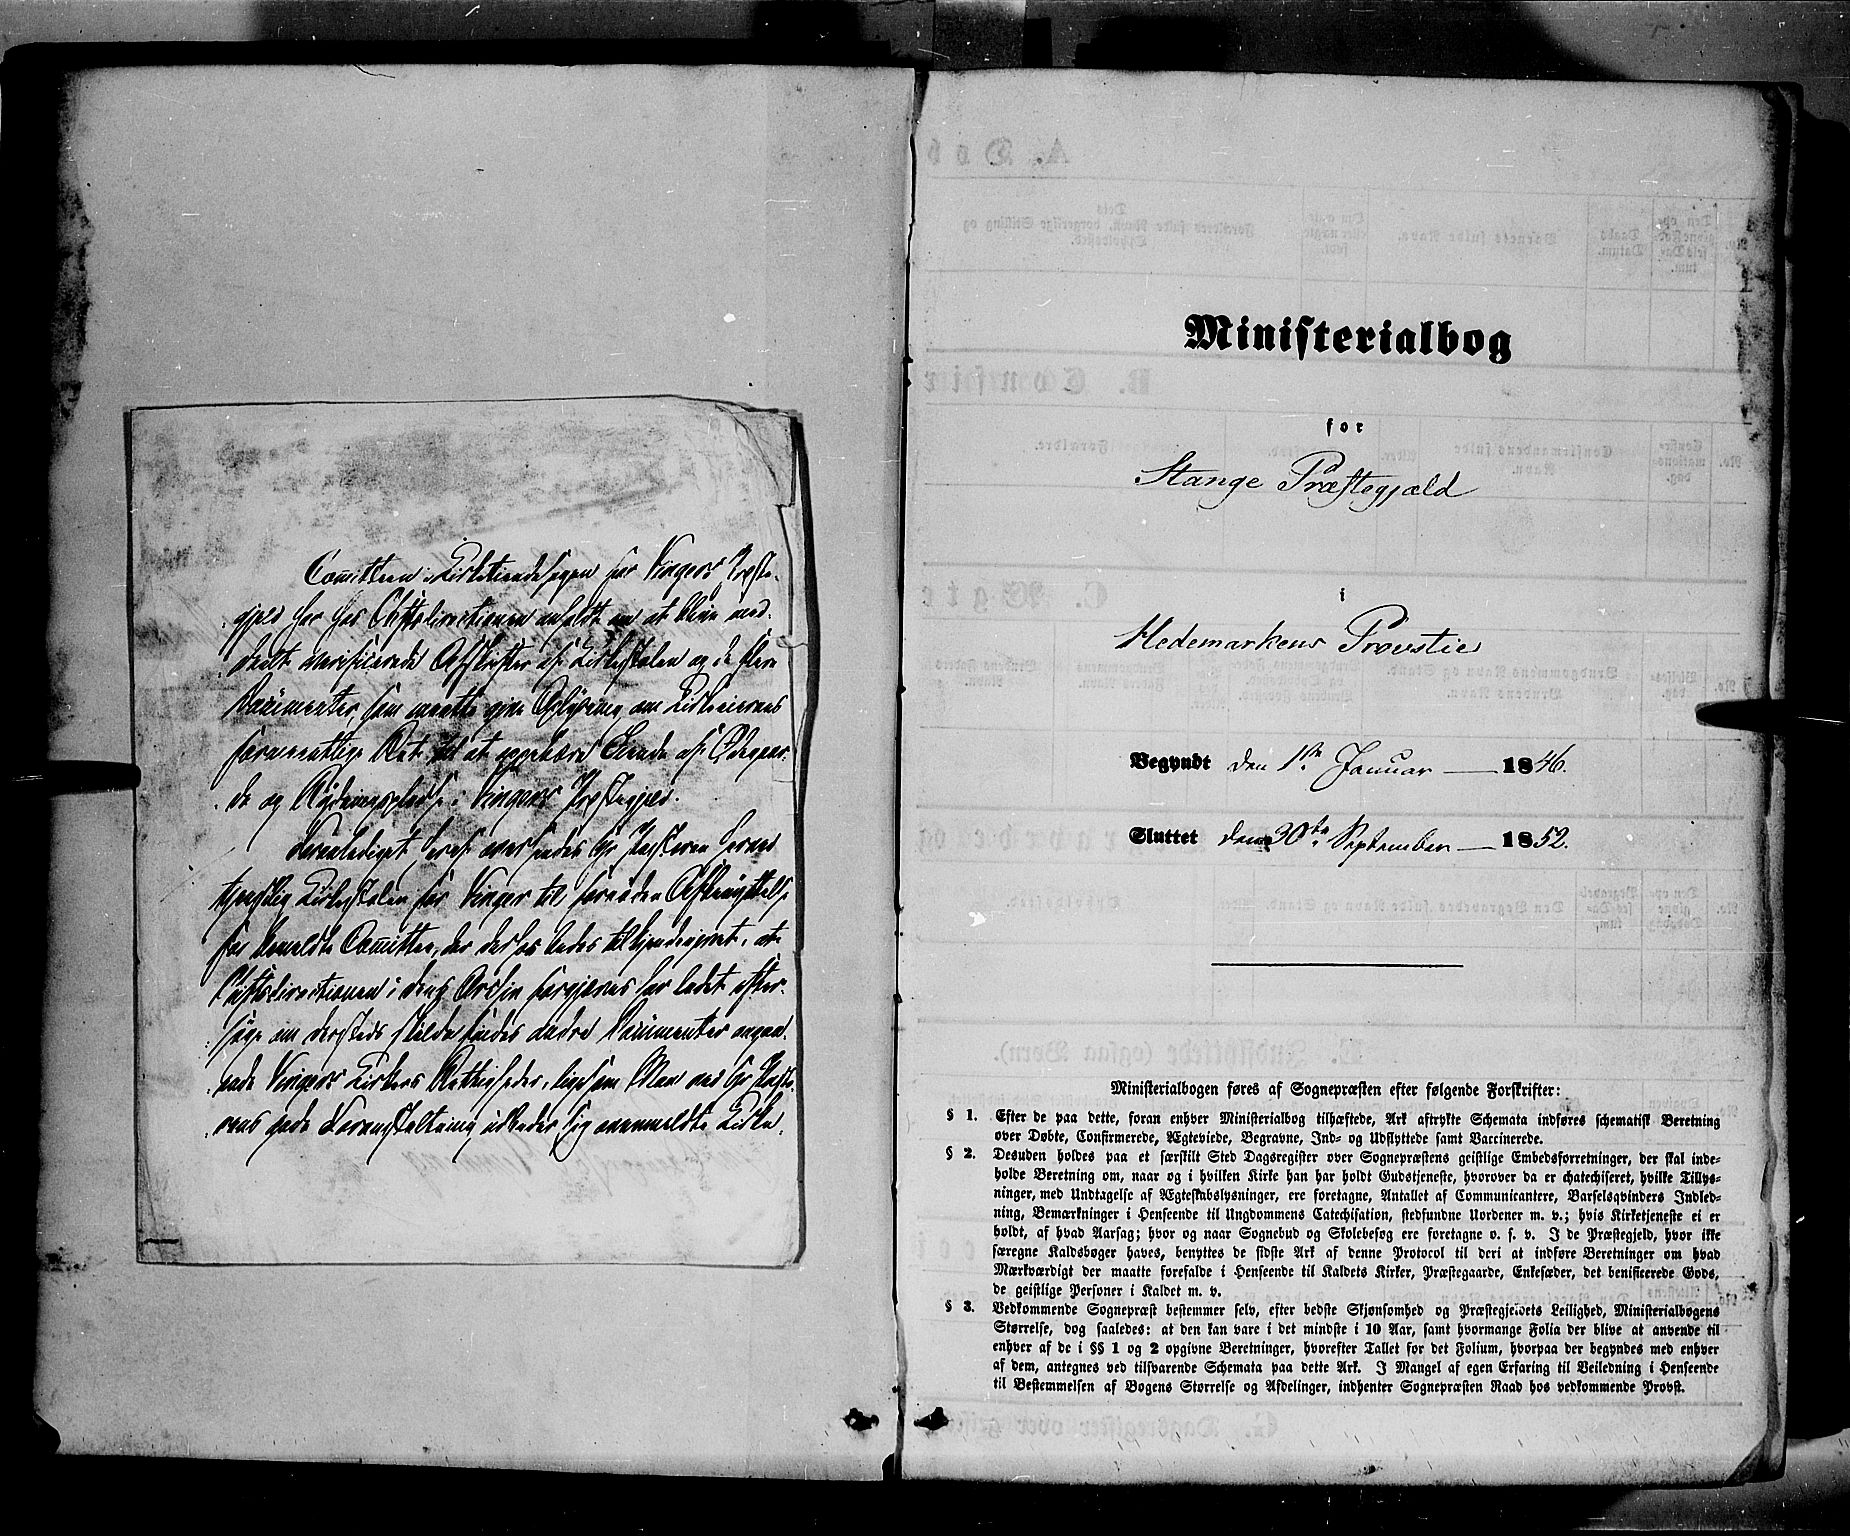 Comitteen i Kirketiendesagen for Vingers Præste-
gjeld har hos Stiftsdirectionen anholdt om at blive med-
deelt verificerede Afskrifter af Kirkestolen og de flere
Documenter, som maatte give Oplysning om Kirkeeierens
formentlige Ret til at oppebære Tiende af Ødegaar-
de og Rydningspladse i Vingers Præstegjeld.
oversendes Hr Pastoren herved
Kirkestolen for Vinger til fornøden Afbenyttelse
for bemeldte Comittee, der derhos bedes tilkjendegivet, at
Stiftsdirectionen i dens Archiv forgjeves har ladet efter-
søge om dersteds skulde findes andre Documenter angaa-
ende Vingers Kirkers Rettigheder, ligesom Man ved Hr Pasto-
rens gode Foranstaltning udbeder sig ovenmeldte Kirke
Ministerialbog
for
Stange Præstegjæld
i
Hedemarkens Provstie
Begyndt den 1ste Januar 1846.
Sluttet den 30te September 1852.
Ministerialbogen føres af Sognepræsten efter følgende Forskrifter:
§ 1. Efter de paa dette, foran enhver Ministerialbog tilhæftede, Ark aftrykte Schemata indføres schematisk Beretning
over Døbte, Confirmerede, Ægteviede, Begravne, Ind- og Udflyttede samt Vaccinerede.
§ 2. Desuden holdes paa et særskilt Sted Dagsregister over Sognepræstens geistlige Embedsforretninger, der skal inde-
holde Beretning om, naar og i hvilken Kirke han har holdt Gudstjeneste, hvorover da er chatechiseret, hvilke Tillys-
ninger, med Undtagelse af Ægteskabslysninger, ere foretagne, Antallet af Communicantere, Barselqvinders Indled-
ning, Bemærkninger i Henseende til Ungdommens Catechisation, stedfundne Uordener m. v.; hvis Kirketjeneste ei er
holdt, af hvad Aarsag; hvor og naar Sognebud og Skolebesøg ere foretagne o. s. v. I de Præstegjeld, hvor ikke
særegne Kaldsbøger haves, benyttes de sidste Ark af denne Protocol til deri at indføre Beretninger om hvad
Mærkværdigt der maatte forefalde i Henseende til Kaldets Kirker, Præstegaarde, Enkesæder, det beneficerede Gods,
de geistlige Personer i Kaldet m. v.
§ 3. Vedkommende Sognepræst bestemmer selv, efter bedste Skjønsomhed og Præstegjeldets Leilighed, Ministerialbogens
Størrelse, dog saaledes: at den kan vare i det mindste i 10 Aar, samt hvormange Folia der blive at anvende til
enhver af de i §§ 1 og 2 opgivne Beretninger, hvorefter Tallet for det Folium, hvorpaa der begyndes med enhver
af dem, antegnes ved tilsvarende Schemata paa dette Ark. I Mangel af egen Erfaring til Veiledning i Henseende
til Bestemmelsen af Bogens Størrelse og Afdelinger, indhenter Sognepræsten Raad hos vedkommende Provst.